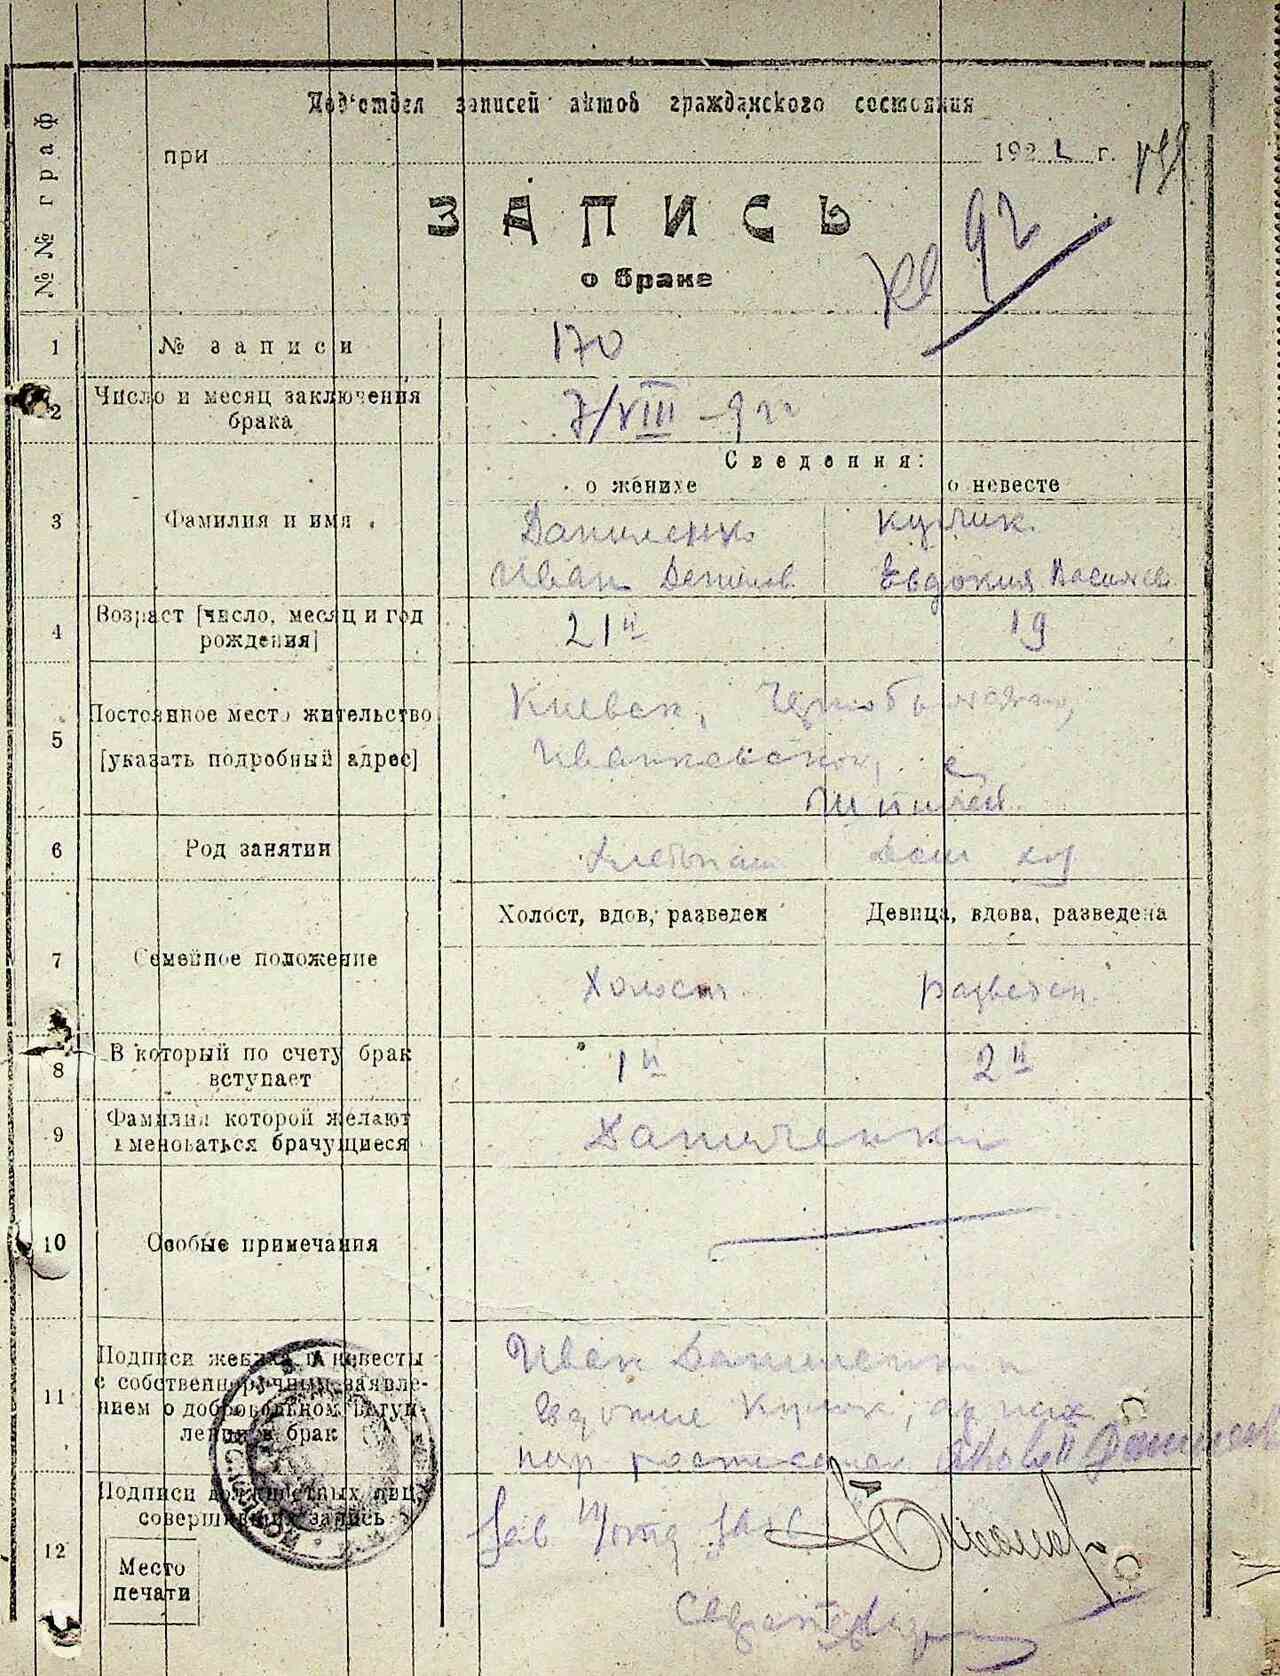 №№ граф
Под'отдел записей актов гражданского состояния
при 1922 г.
ЗАПИСЬ
о браке
92
1 № записи 170
2 Число и месяц заключения брака 7/VIII – 922
Сведения:
о женихе о невесте
3 Фамилия и имя Даниленко
Иван Евдокия
4 Возраст [число, месяц и год рождения] 21й 19
5 Постоянное место жительство [указать подробный адрес] Киевск,
Иванковской, с
6 Род занятии Хлебопаш Дом хоз
Холост, вдов, разведен Девица, вдова, разведена
7 Семейное положение Холост разведен.
8 В который по счету брак вступает 1й 2й
9 Фамилия которой желают именоваться брачущиеся Даниленки
10 Особые примечания
11 Подписи жениха и невесты с собственноручным заявлением о добровольном вступлении в брак Иван Даниленко
12 Подписи должностных лиц, совершивших запись Зав
Место печати